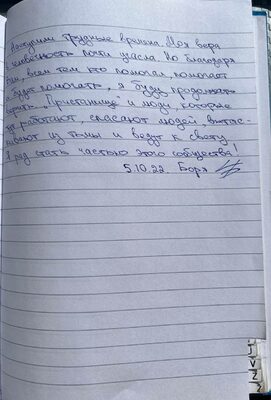 Наступили трудные времена. Моя вера
человечность почти угасла. Но благодаря
Вам, всем тем кто помогал, помогает
и будет помогать, я буду продолжать
верить. "Пристанище" и люди, которые
тут работают, спасают людей, вытас-
кивают из тьмы и ведут к свету.
Я рад стать частью этого сообщества!
5.10.22. Боря
J
V
Z